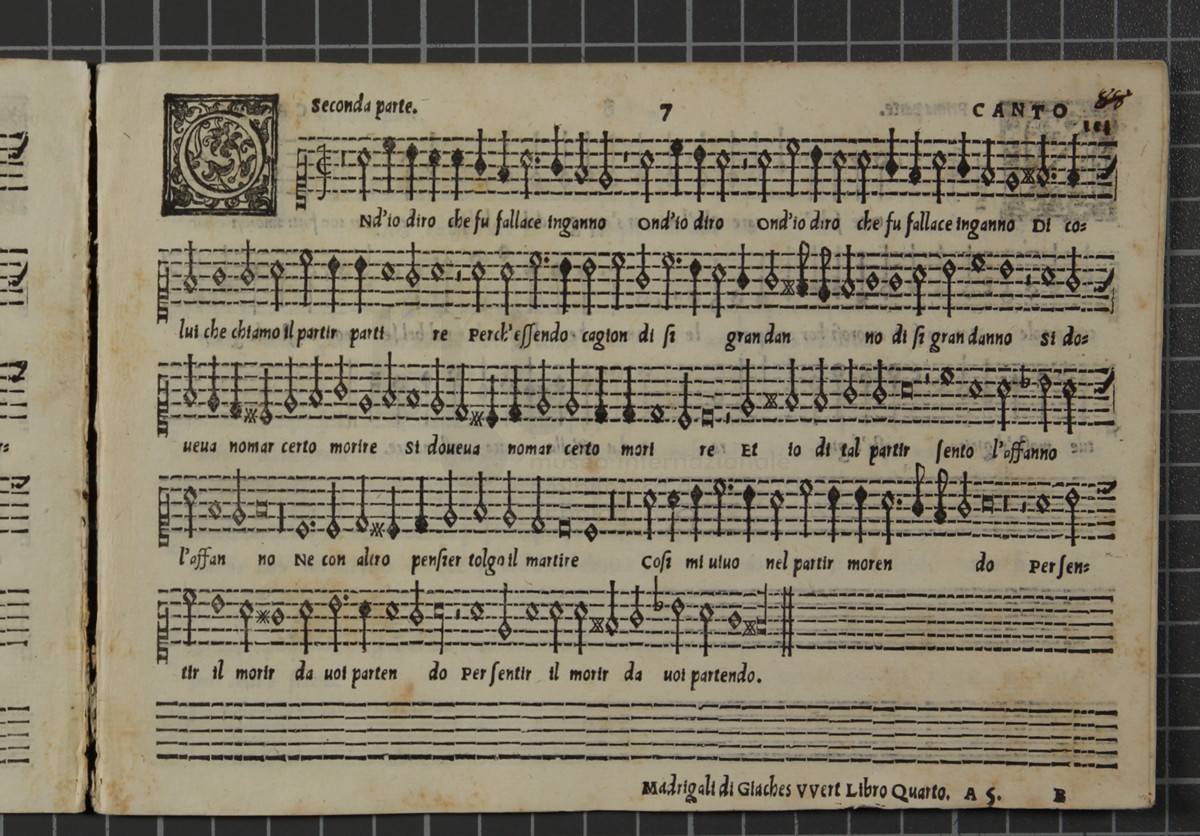 Seconda parte. 7 CANTO 88
O
Nd'io diro che fu fallace inganno Ond'io diro Ond'io diro che fu fallace inganno Di co=
lui che chiamo il partir parti re Perch'essendo cagion di si gran dan no di si gran danno Si do=
ueua nomar certo morire Si doueua nomar certo mori re Et io di tal partir sento l'affanno
l'affan no Ne con altro pensier tolgo il martire Cosi mi uiuo nel partir moren do Per sen=
tir il morir da uoi parten do Per sentir il morir da uoi partendo.
Madrigali di Giaches VVert Libro Quarto. A 5. B